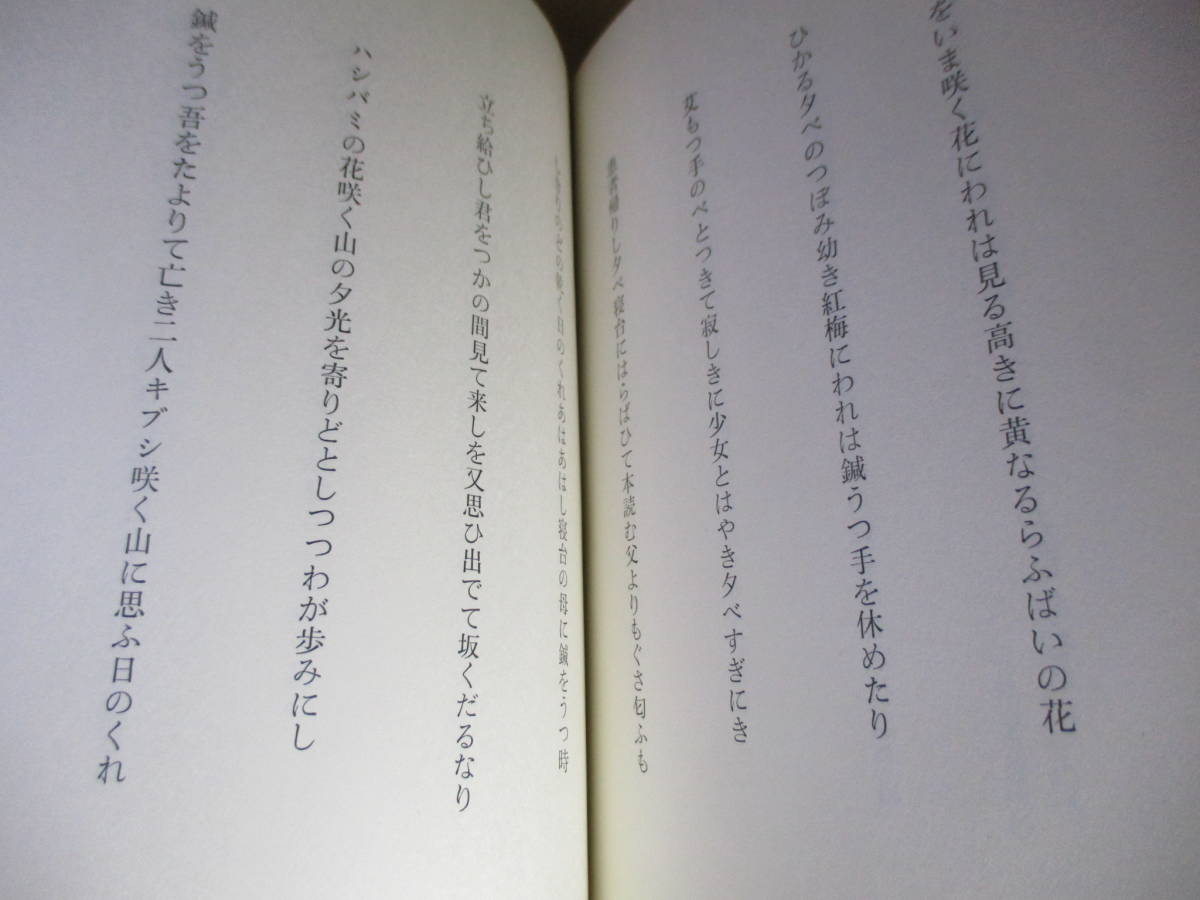 をいま咲く花にわれは見る高きに黄なるらふばいの花
ひかる夕べのつぼみ幼き紅梅にわれは鍼うつ手を休めたり
艾もつ手のべとつきて寂しきに少女とはやき夕べすぎにき
患者帰りし夕べ寝台にはらばひて本読む父よりもぐさ匂ふも
く日のくれあはあはし寝台の母に鍼をうつ時
立ち給ひし君をつかの間見て来しを又思ひ出でて坂くだるなり
ハシバミの花咲く山の夕光を寄りどとしつつわが歩みにし
鍼をうつ吾をたよりて亡き二人キブシ咲く山に思ふ日のくれ